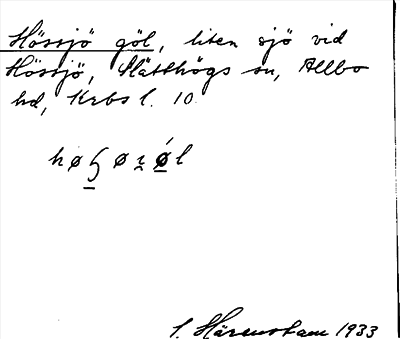 Hössjö göl, liten sjö vid
Hössjö, Slätthögs sn, Allbo
hd, Krbs l. 10.
S. Härenstam 1933